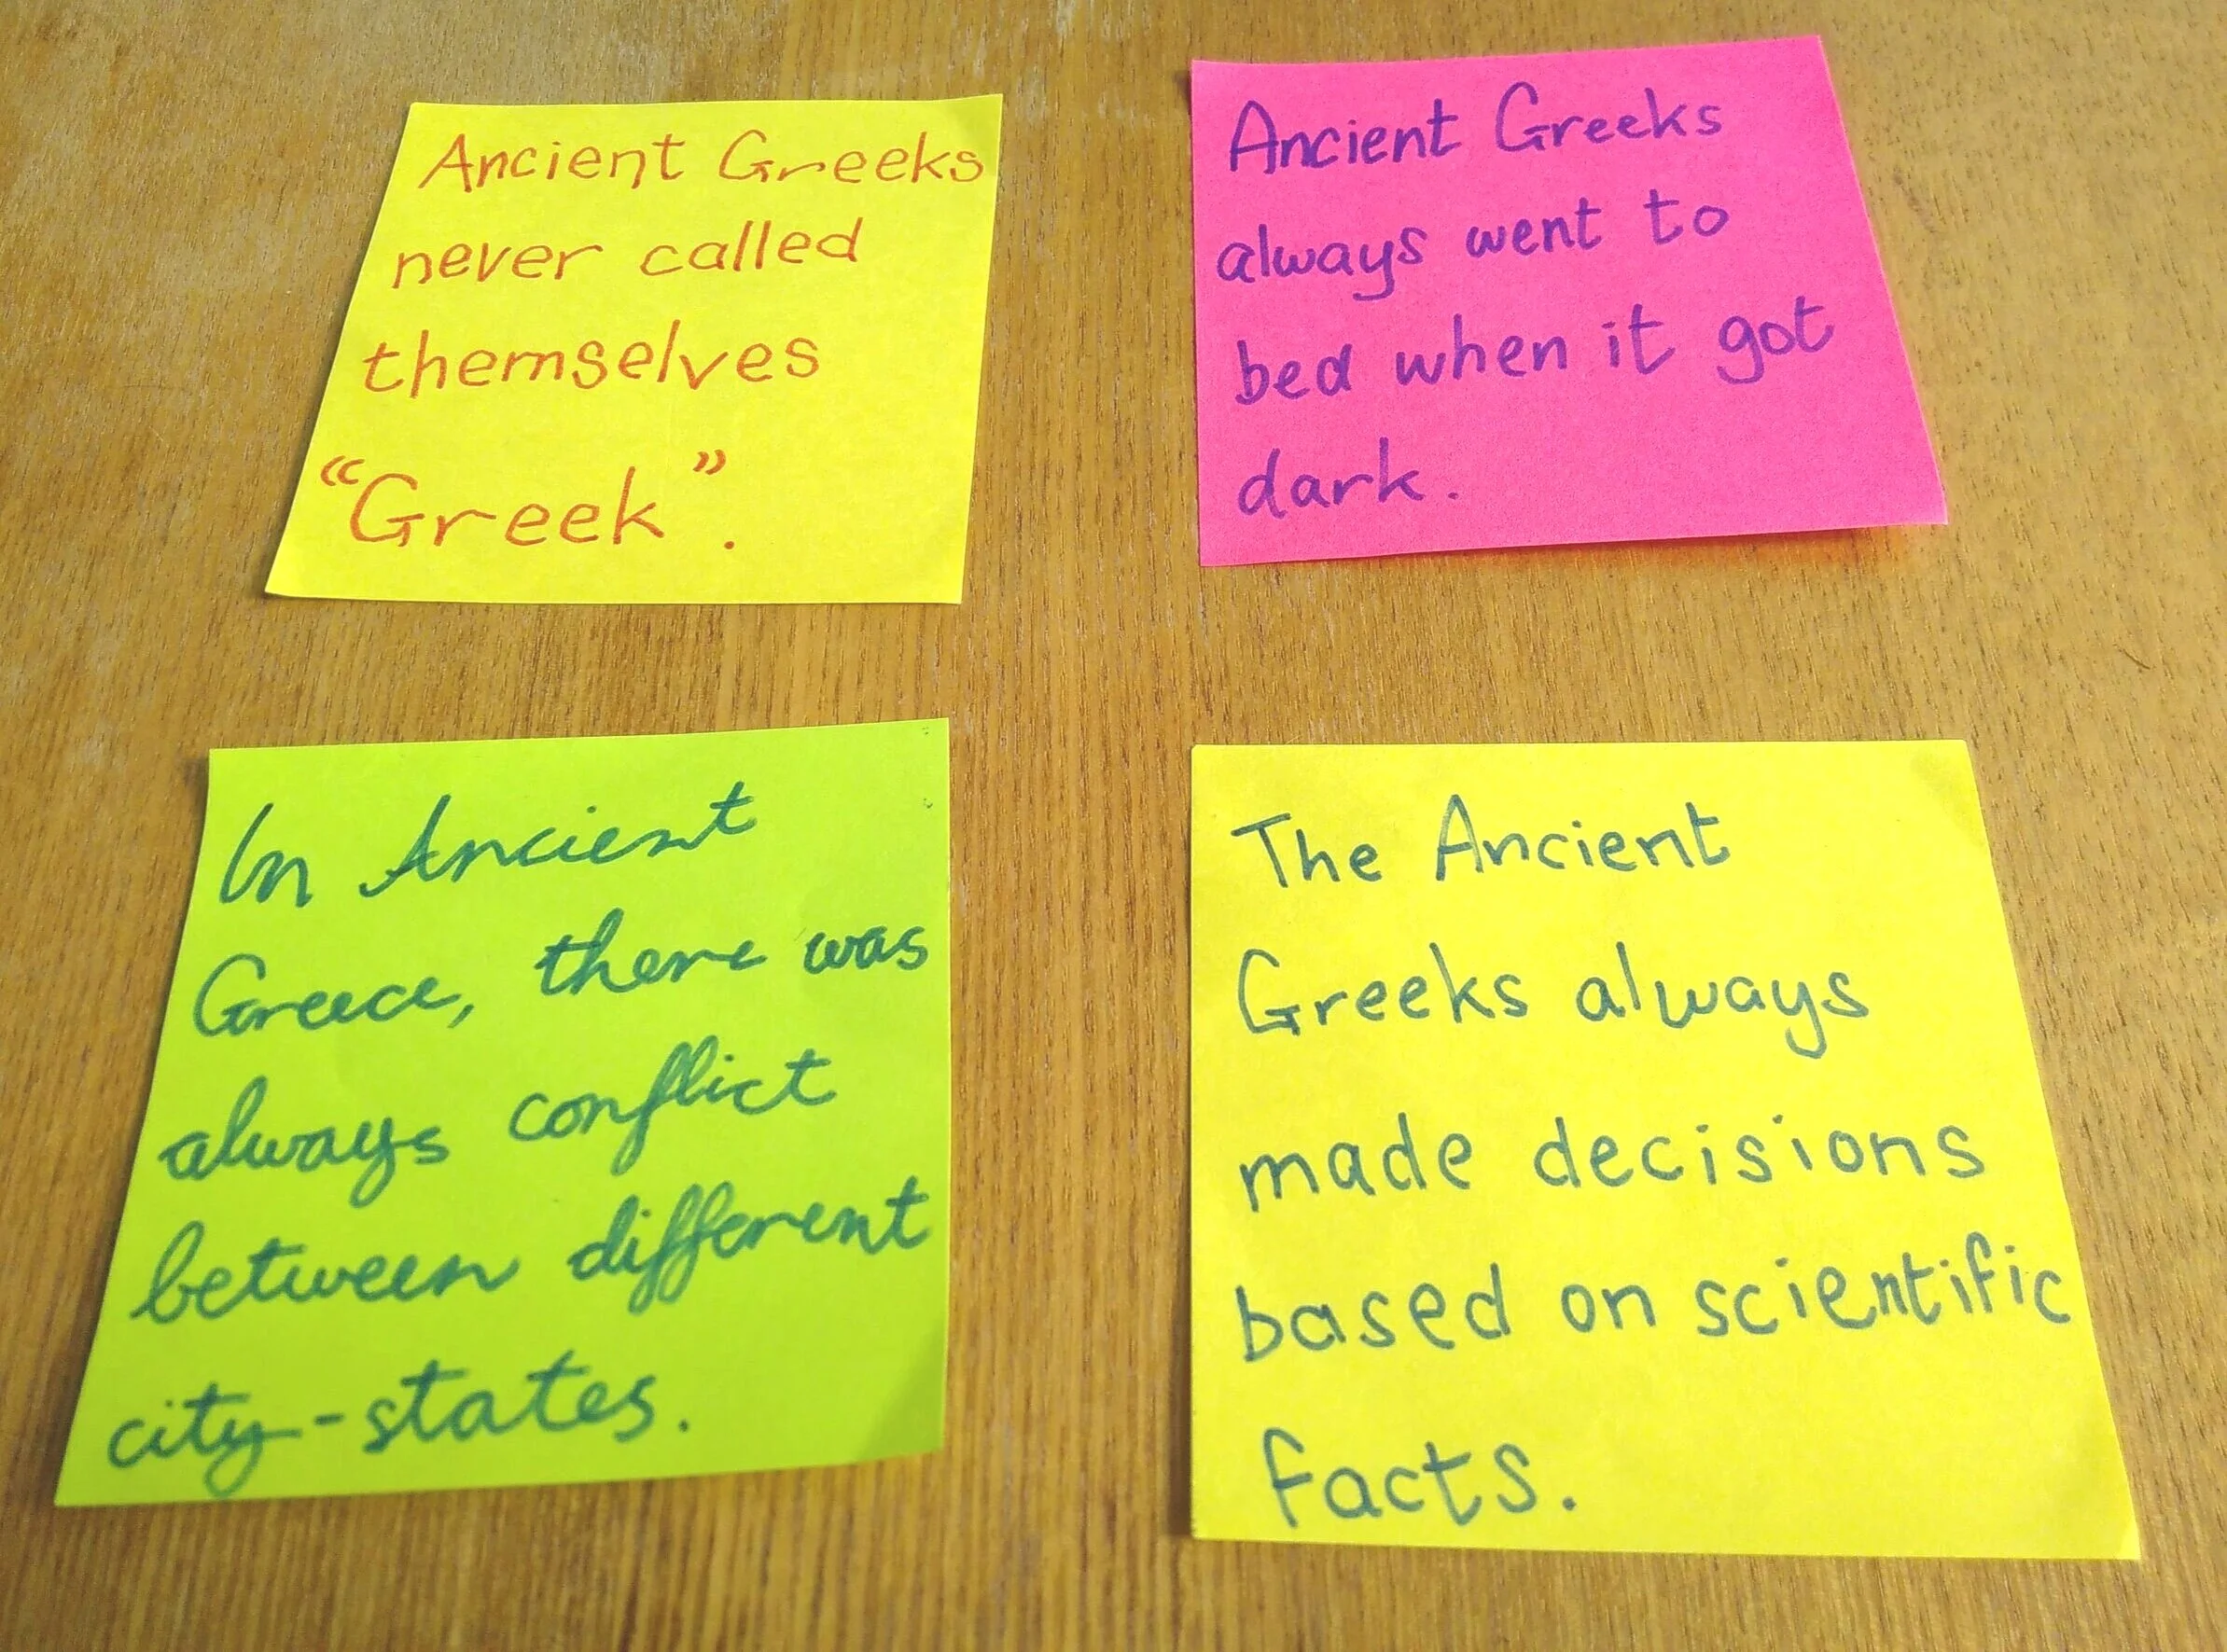 Ancient Greeks
never called
themselves
“Greek”.
Ancient Greeks
always went to
bed when it got
dark.
In Ancient
Greece, there was
always conflict
between different
city-states.
The Ancient
Greeks always
made decisions
based on scientific
facts.